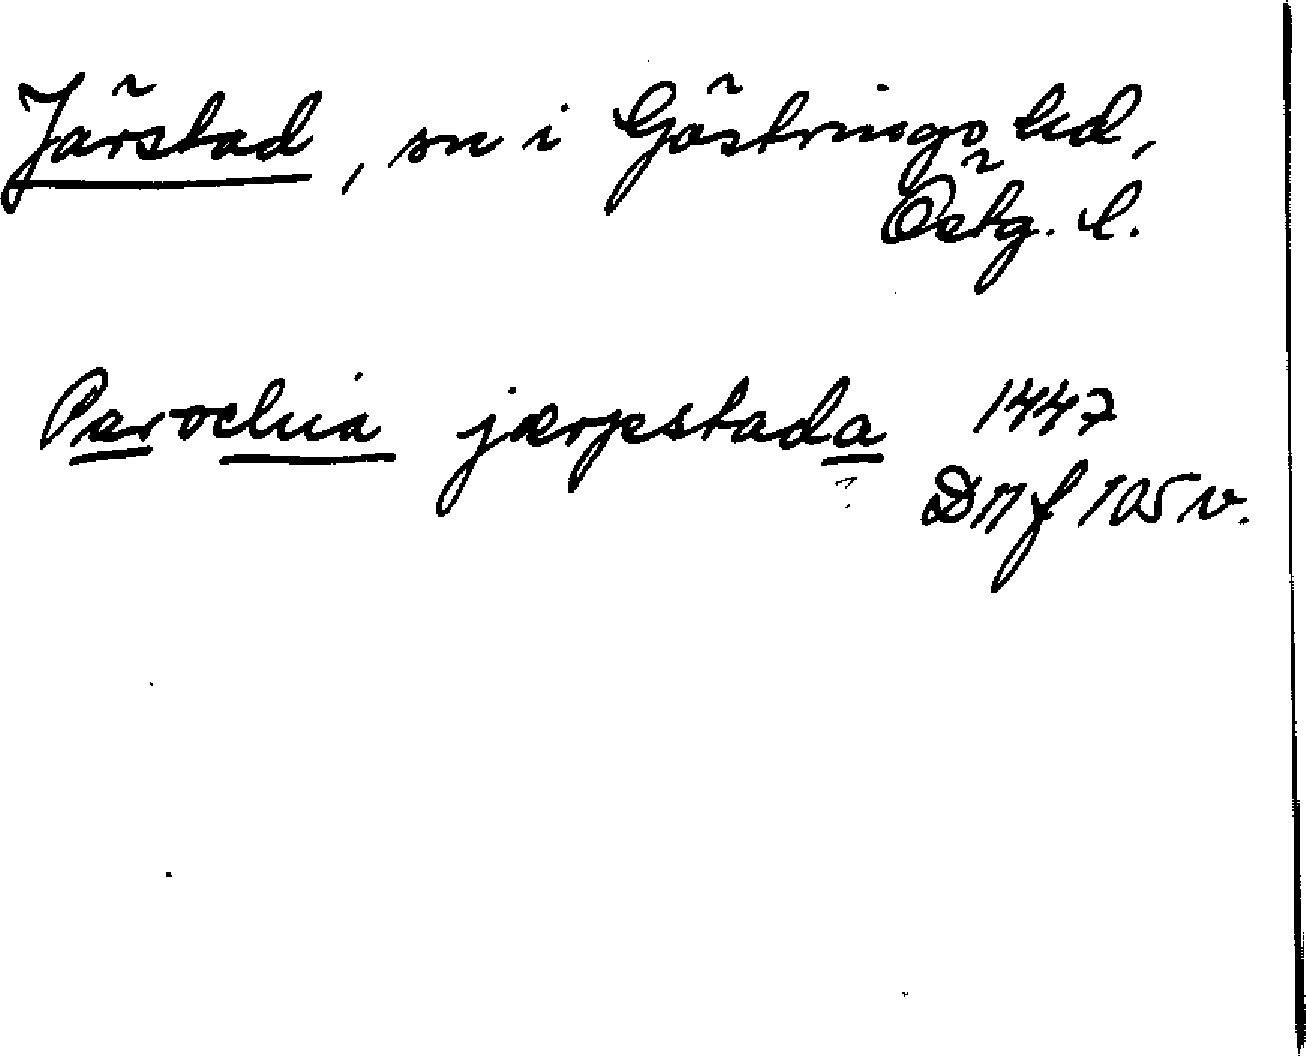 Järstad, sn i Göstrings hd,
Östg. l.
Parochia jærpstada 1447
D 11 f 105 v.